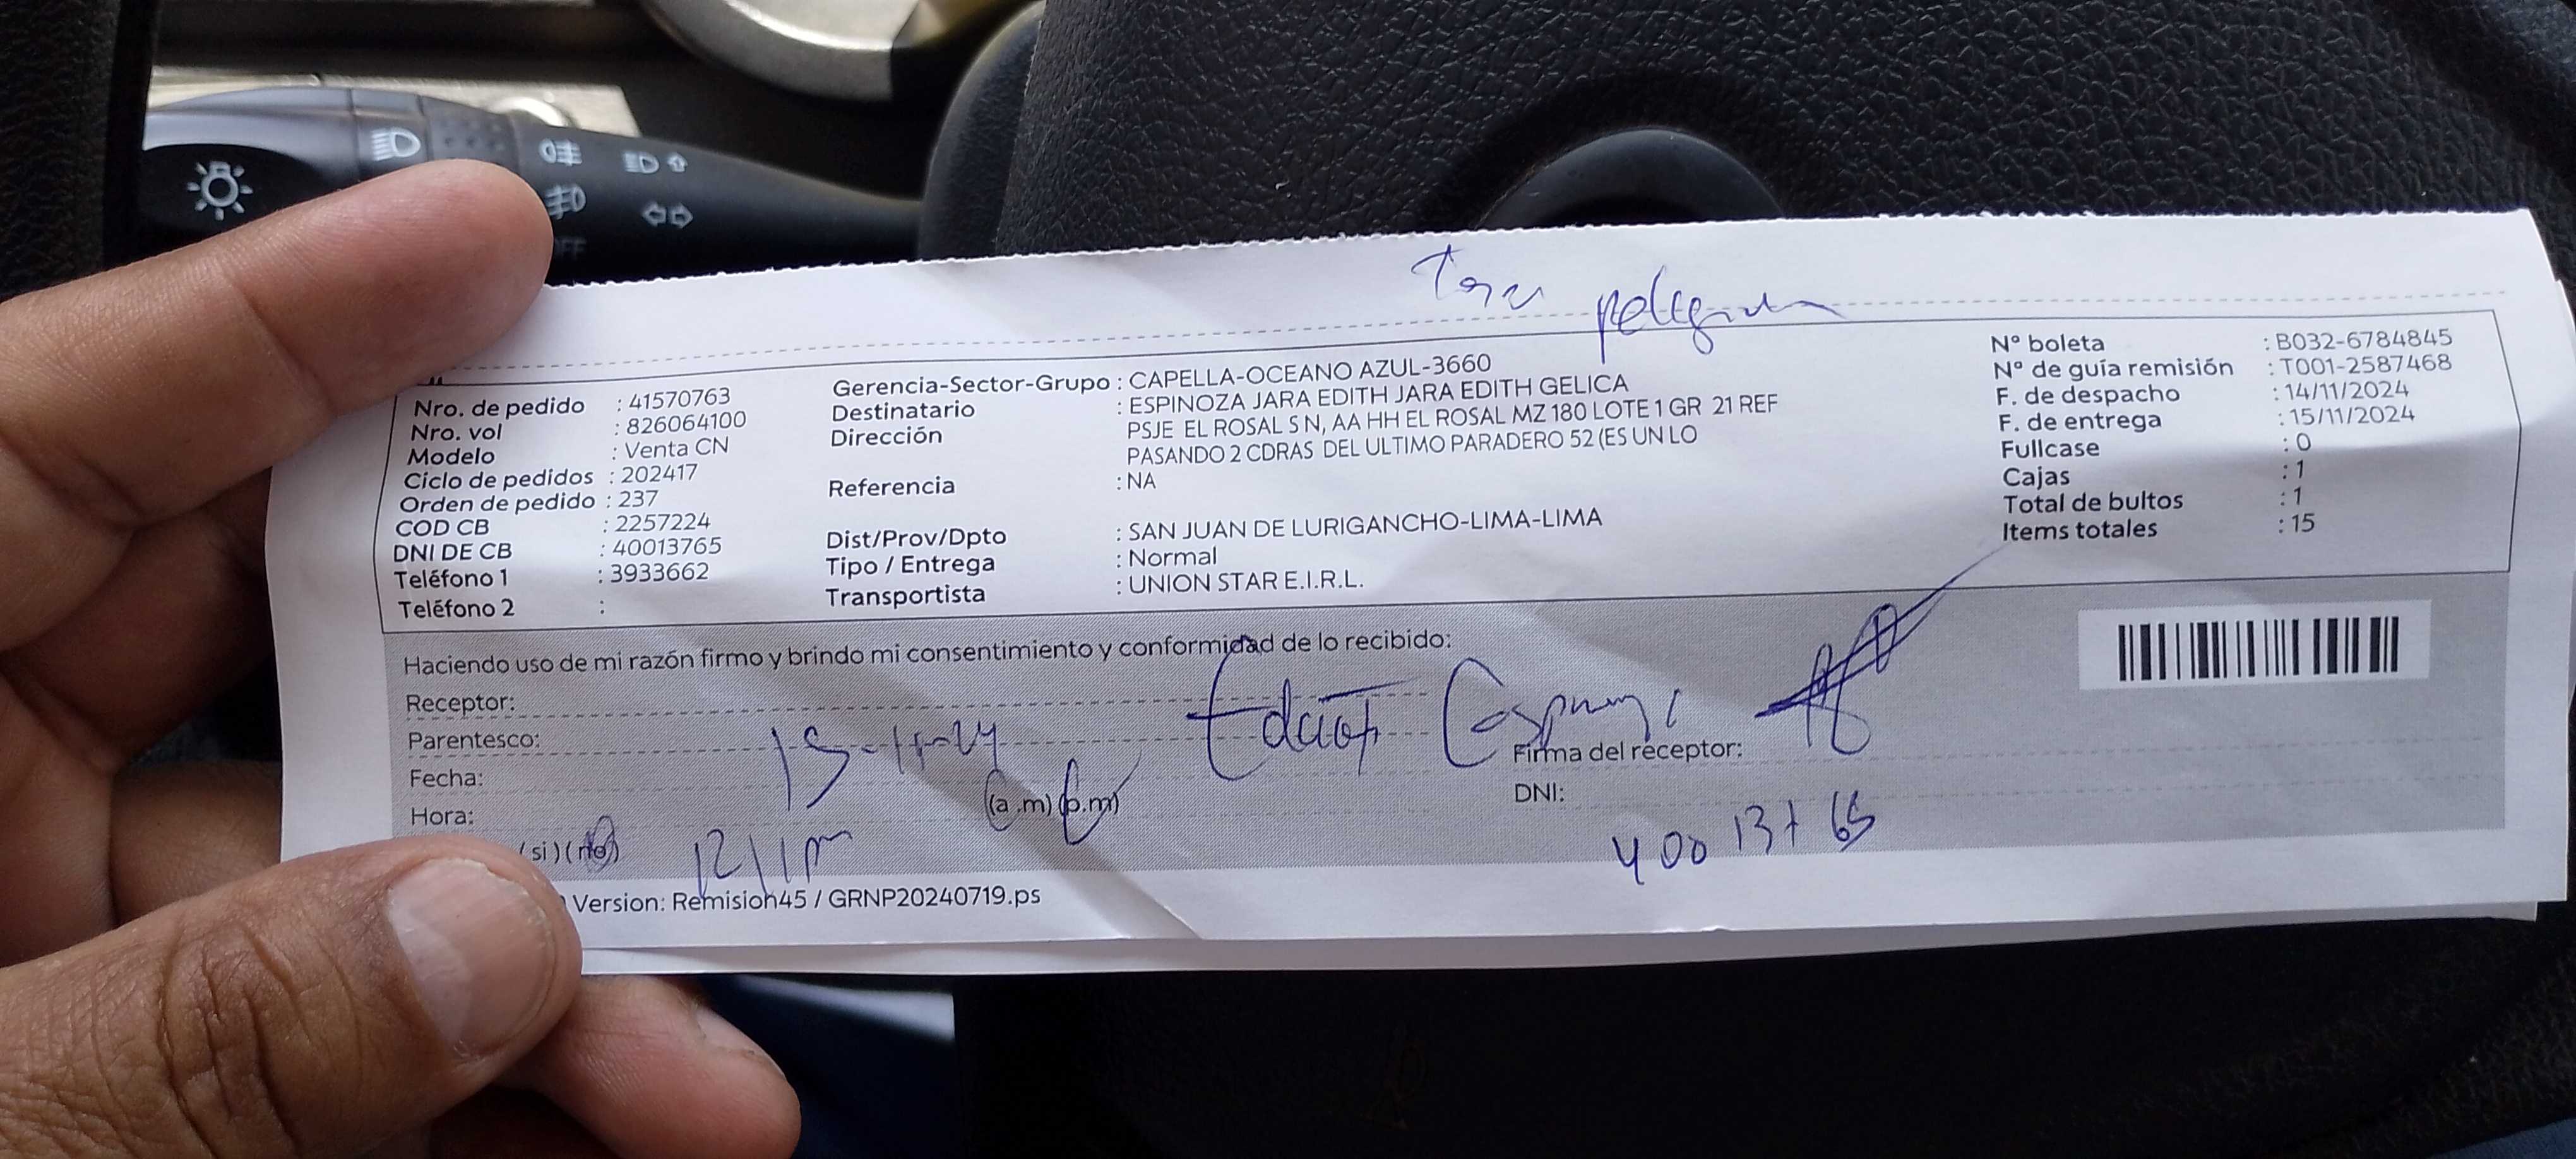 Nro. de pedido : 41570763
Nro. vol : 826064100
Modelo : Venta CN
Ciclo de pedidos : 202417
Orden de pedido : 237
COD CB : 2257224
DNI DE CB : 40013765
Teléfono 1 : 3933662
Teléfono 2 :
Gerencia-Sector-Grupo : CAPELLA-OCEANO AZUL-3660
Destinatario : ESPINOZA JARA EDITH JARA EDITH GELICA
Dirección : PSJE EL ROSAL S N, AA HH EL ROSAL MZ 180 LOTE 1 GR 21 REF
PASANDO 2 CDRAS DEL ULTIMO PARADERO 52 (ES UN LO
Referencia : NA
Dist/Prov/Dpto : SAN JUAN DE LURIGANCHO-LIMA-LIMA
Tipo / Entrega : Normal
Transportista : UNION STAR E.I.R.L.
N° boleta : B032-6784845
N° de guía remisión : T001-2587468
F. de despacho : 14/11/2024
F. de entrega : 15/11/2024
Fullcase : 0
Cajas : 1
Total de bultos : 1
Items totales : 15
Haciendo uso de mi razón firmo y brindo mi consentimiento y conformidad de lo recibido:
Receptor:
Parentesco:
Fecha: 15-11-24
Hora: (a.m) (p.m)
(si) (no)
Firma del receptor:
DNI: 40013765
Version: Remision45 / GRNP20240719.ps